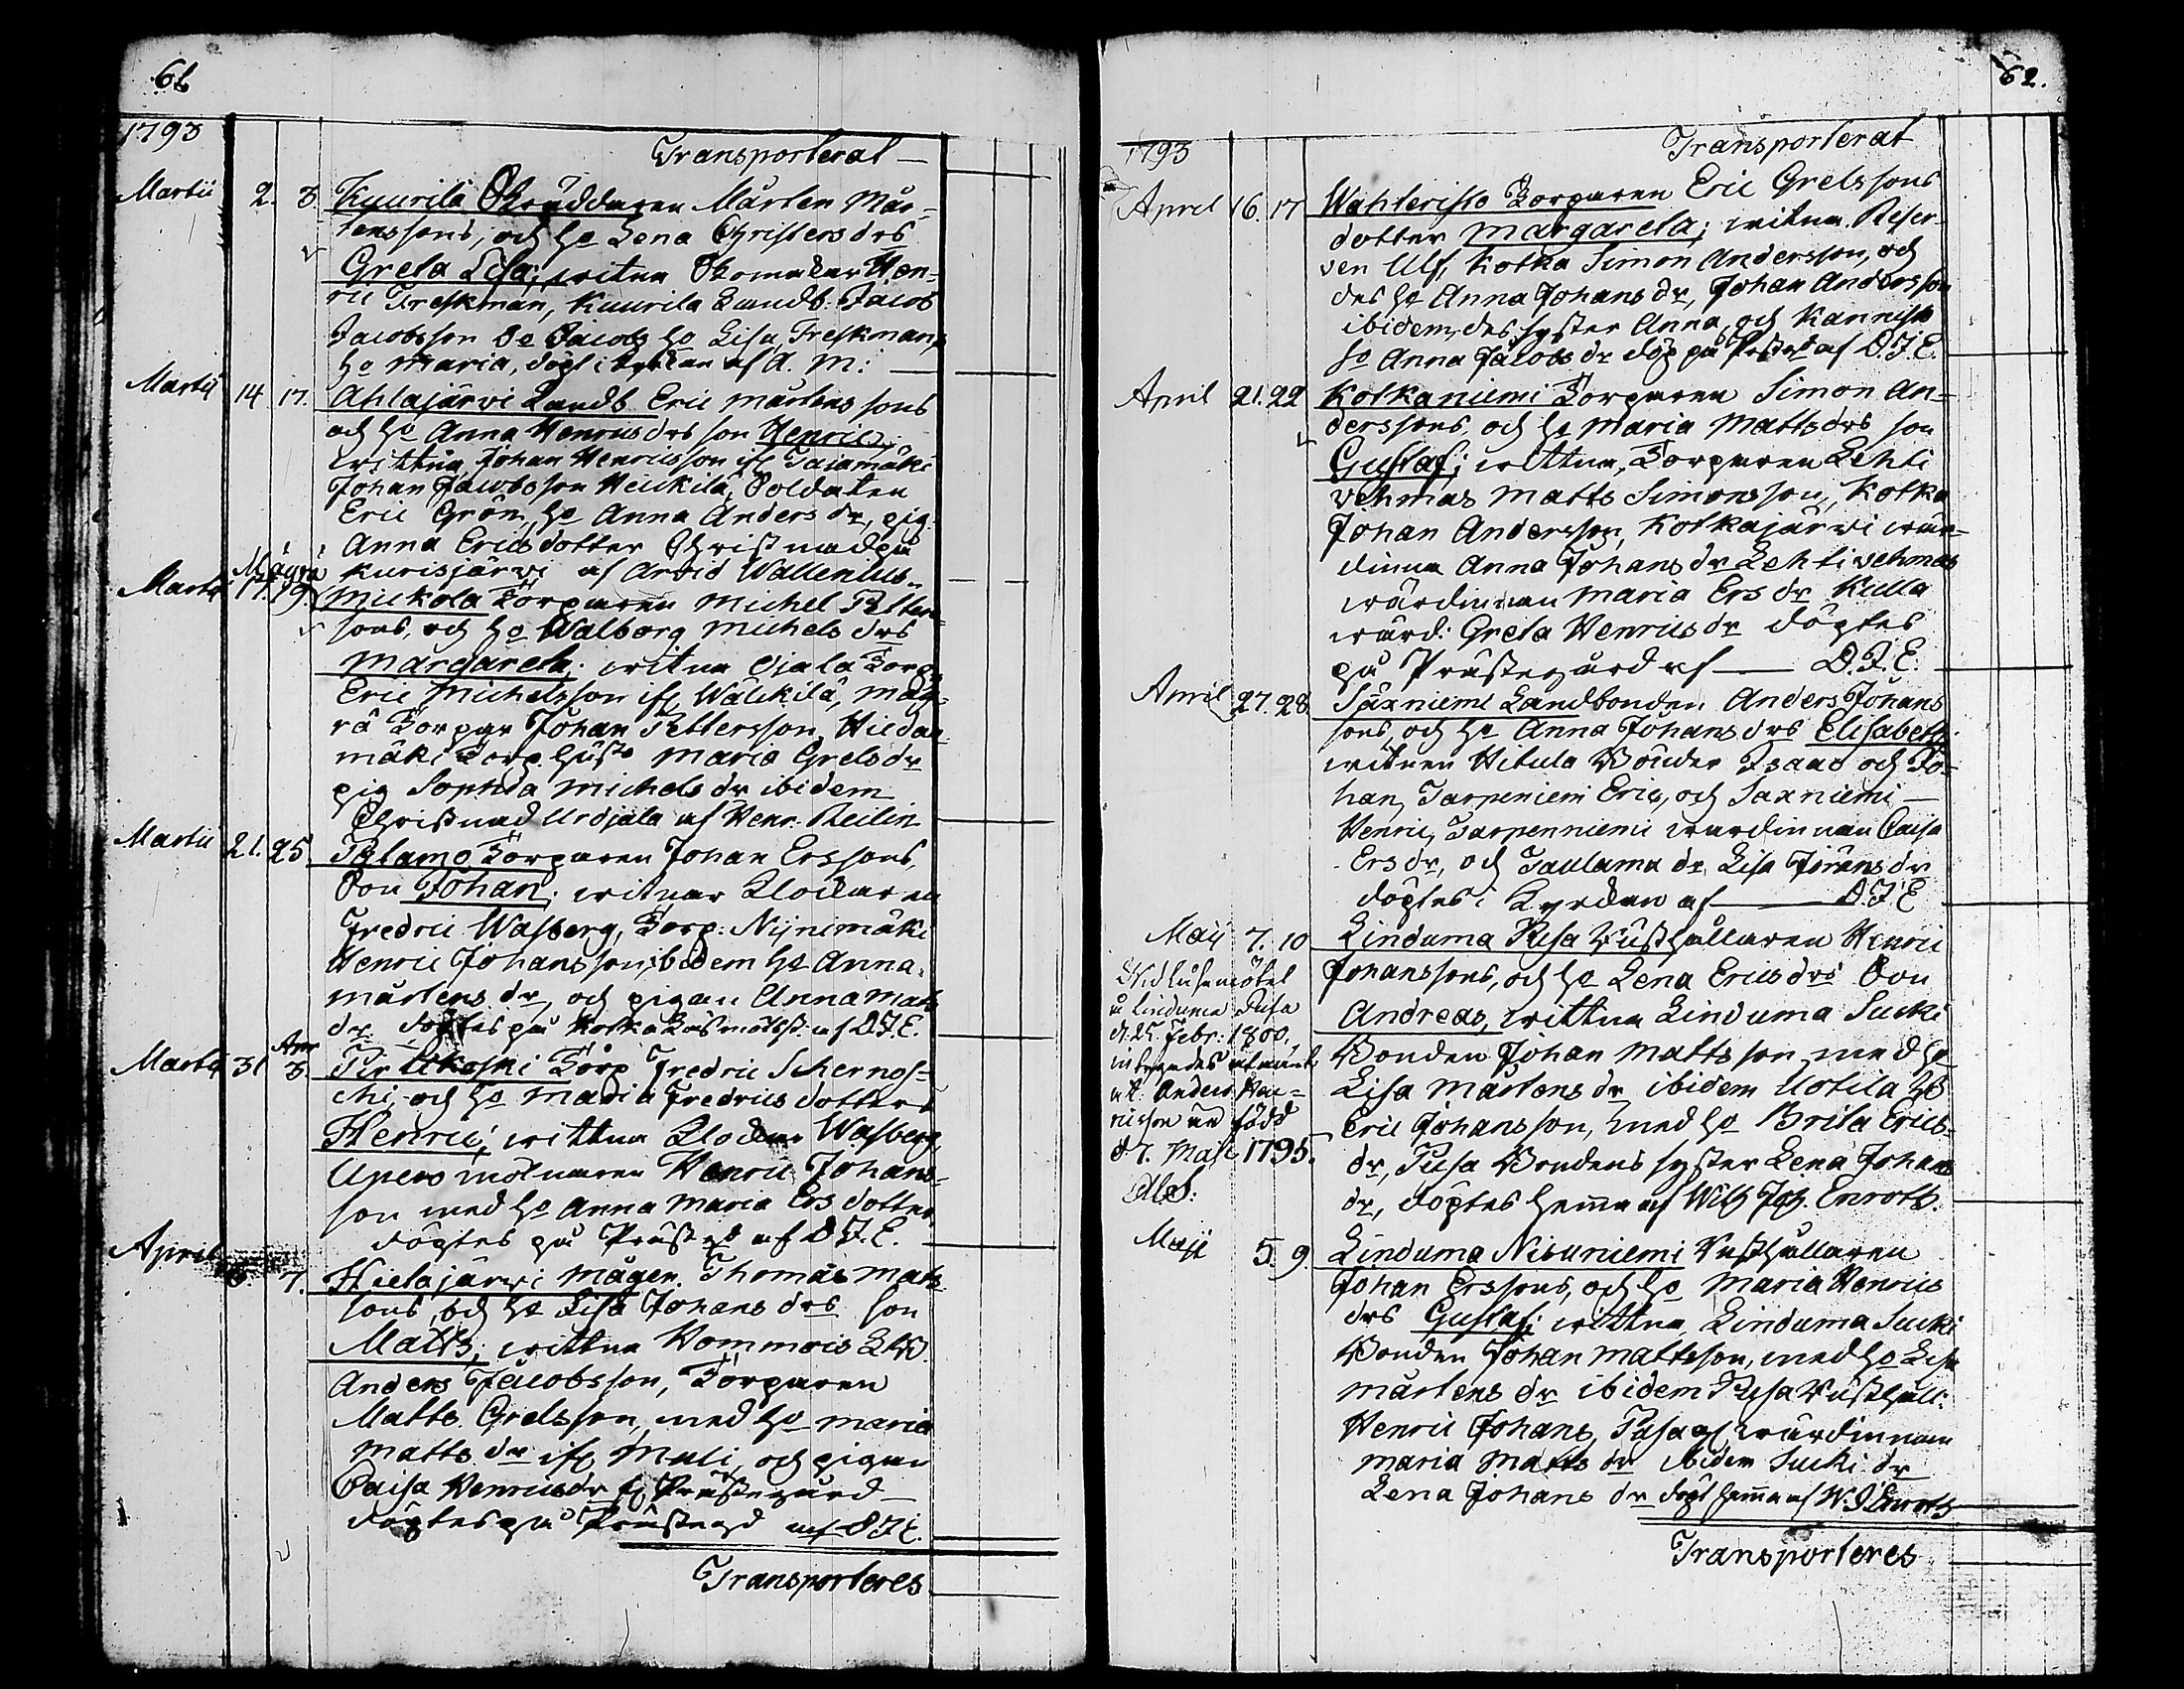 61
1793
Transporterat —
Martii 2. 3. Kuurila Skräddaren Mårten Mår-
tenssons, och ho Lena Christersdrs
Greta Lisa; witna Skomakar Hen-
ric Treskman, Kuurila Landb: Jacob
Jacobsson Jacobs ho Lisa, Treskmans
ho Maria, döpt i kyrkan af A. M:
Martii 14 17. Ahlajärvi Landb. Eric Mårtens sons
och ho Anna Henricsdrs son Henric;
wittna, Johan Henricsson ifr Tajamäki
Johan Jacobsson Heickilä, Soldaten
Eric Grön, ho Anna Anders dr, pig.
Anna Ericsdotter Christnad på
Kurisjärvi af Arvid Wallenius.
Mägrä
Martii 17. 19. Mickola Torparen Michel Petters-
sons, och ho Walborg Michelsdrs
Margareta; witna Ojala Torp.
Eric Michelsson ifr Wälckilä, Mäg-
rä Torpar Johan Pettersson, Hiedan
mäki Torp. hust. Maria Grelsdr
pig Sophia Michelsdr ibidem
Christnad Urdjala af Henr. Reilin
Martii 21. 25 Palamo Torparen Johan Erssons,
Son Johan; witnar Klockaren
Fredric Wasberg, Torp: Nijnimäki
Henric Johansson, ibidem ho Anna
Mårtens dr, och pigan Anna Matts
dr döptes på Kotka af D.F.E.
Apr
Martii 31 3. Pirttikoski Torp Fredric Schernos-
chi, och ho Maria Fredricsdotters
Henric; wittna Klockar Wasberg,
Upens mölnaren Henric Johans-
son med ho Anna Maria Ersdotter
döptes på Prästgd af D.F.E.
April 6. 7. Hietajärvi Mågen Thomas Mats
sons, och ho Lisa Johansdrs son
Matts; wittna Vommois
Anders Jacobsson, Torparen
Matts Grelsson, med ho Maria
Matts dr ifr Muli, och pigan
Caisa Henricsdr fr Prästegård
döptes på Prästegd af D.F.E.
Transporteres

62.
1793
Transporterat
April 16. 17 Wahteristo Torparen Eric Grelssons
dotter Margareta; witna Reser-
ven Ulf, Kotka Simon Andersson, och
des ho Anna Johans dr, Johan Andersson
ibidem, des syster Anna, och Kannisto
ho Anna Jacobs dr döp på Prästgd af D.F.E.
April 21. 22 Kotkaniemi Torparen Simon An-
derssons, och ho Maria Mattsdrs son
Gustaf; wittna, Torparen Lehti
vehmas Matts Simonsson, Kotka
Johan Andersson, Kotkajärvi wär-
dinna Anna Johans dr Lehtivehmas
wärdinnan Maria Ers dr Kulla
wärd: Greta Henricsdr döptes
på Prästegård af — D.F.E.
April 27. 28. Saxniemi Landbonden Anders Johans
sons, och ho Anna Johansdrs Elisabeth
witnen Hitula Bönder Isaac och Jo-
han, Tarpeniemi Eric, och Saxniemi —
Henric, Tarpenniemi wärdinnan Caisa
Ers dr, och Taulama dr Lisa Jöransdr
döptes i Kyrckan af — D.F.E
Maij 7. 10 Linduma Pusa Rusthållaren Henric
Johanssons, och ho Lena Ericsdrs Son
Andreas, wittna Linduma Sucki
Bonden Johan Mattsson med ho
Lisa Mårtens dr ibidem Uotila
Eric Johansson, med ho Brita Erics
dr, Pusa Bondens syster Lena Johans
dr, döptes hemma af Wilh Joh. Enroth.
Wid husmötet
å Linduma Pusa
d. 25 Febr: 1800,
at Anders Hen-
ricson är född
d 7. Maji 1795.
Maji 5. 9. Linduma Nisuniemi Rusthållaren
Johan Erssons, och ho Maria Henrics
drs Gustaf; wittna Linduma Sucki
Bonden Johan Mattsson, med ho Lisa
Mårtens dr ibidem Pusa Rusthåll:
Henric Johans, Pusa wärdinnan
Maria Matts dr ibidem Sucki dr
Lena Johans dr döpt hemma af W. J Enroth
Transporteres